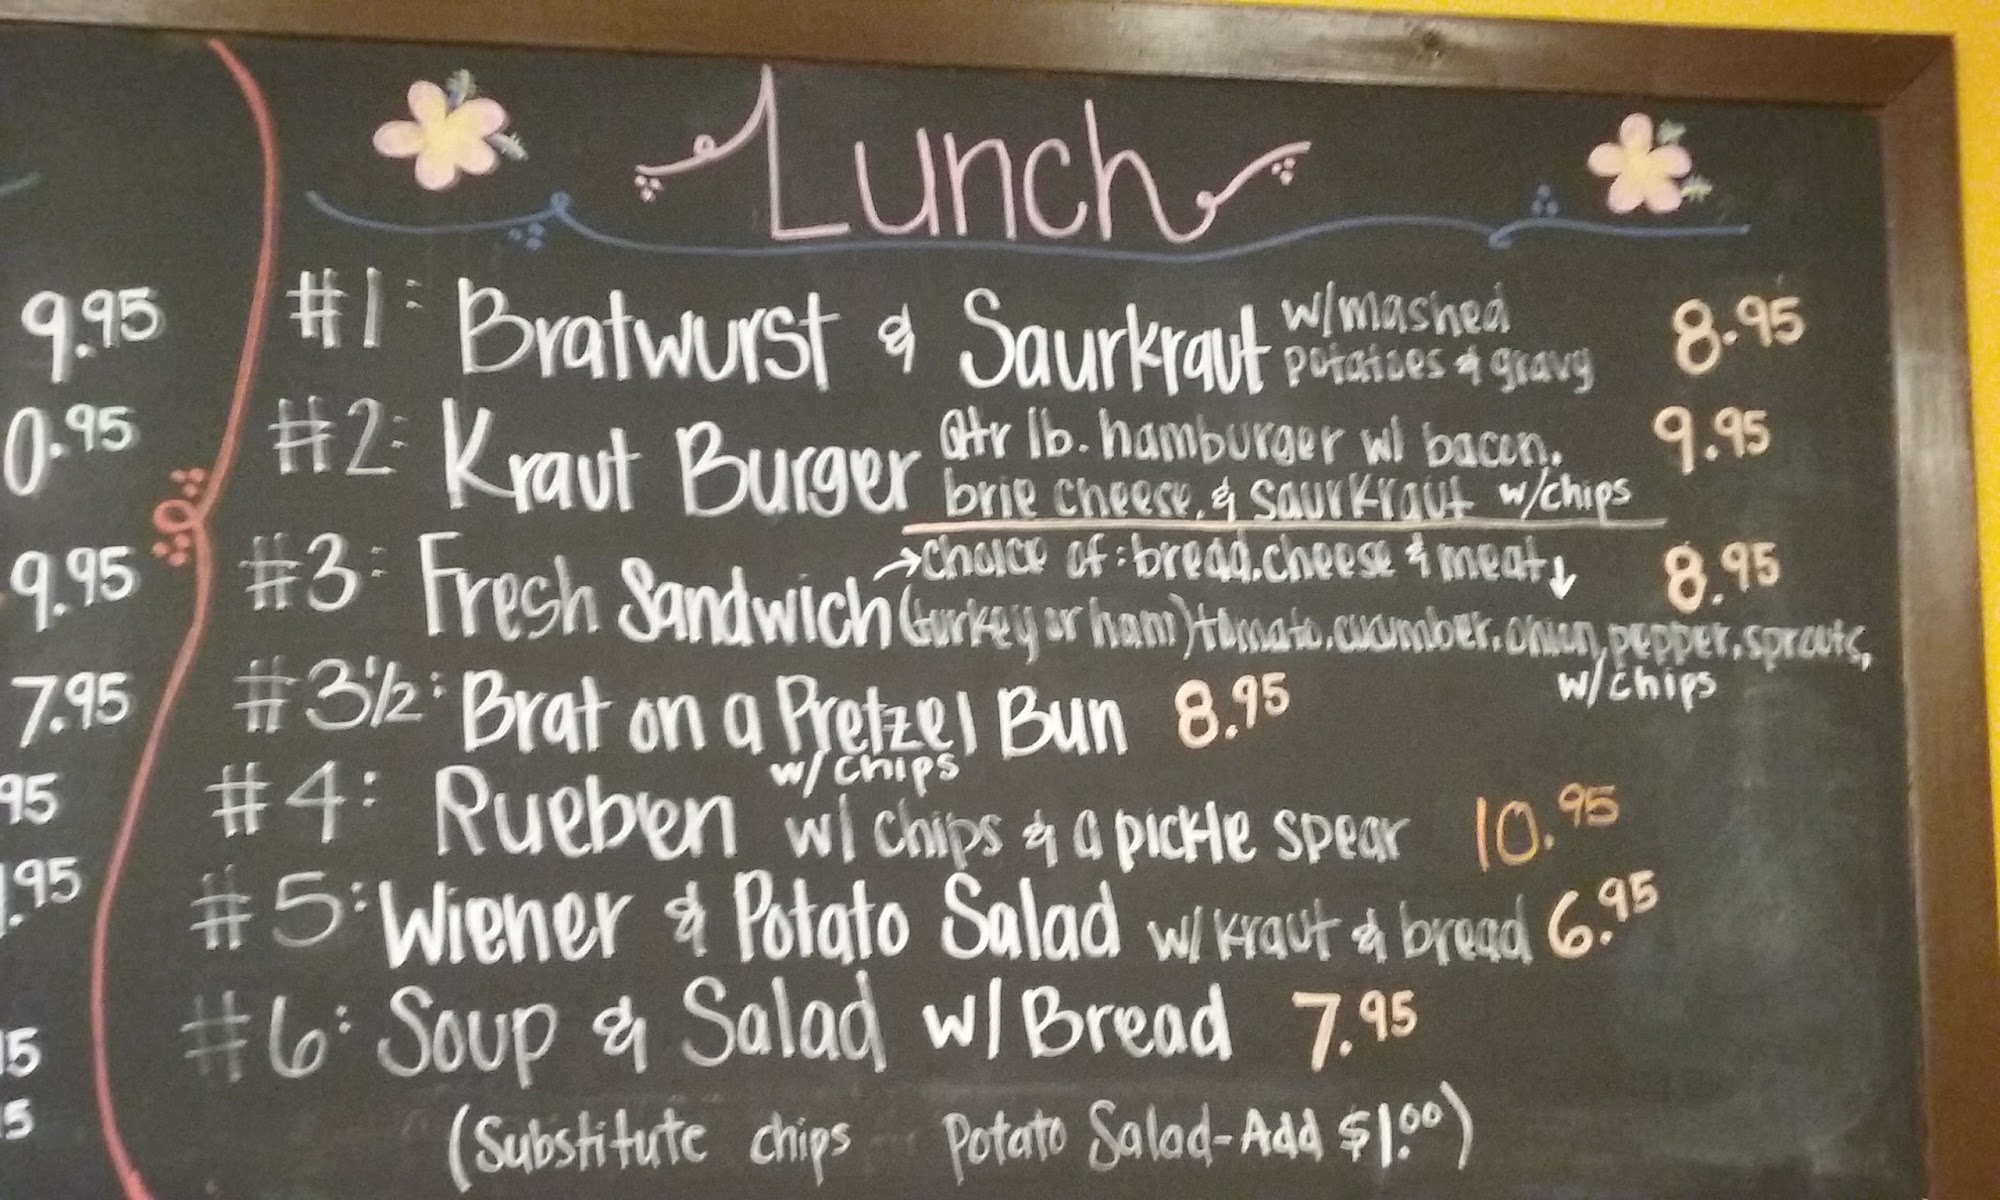 Lunch
9.95
0.95
9.95
7.95
95
.95
15
5
#1: Bratwurst & Saurkraut w/mashed potatoes & gravy 8.95
#2: Kraut Burger Qtr lb. hamburger w/ bacon,
brie cheese, & Saurkraut w/chips 9.95
#3: Fresh Sandwich → choice of: bread, cheese & meat ↓ 8.95
(turkey or ham) tomato, cucumber, onion, pepper, sprouts,
w/chips
#3½: Brat on a Pretzel Bun 8.95
w/chips
#4: Rueben w/ chips & a pickle spear 10.95
#5: Wiener & Potato Salad w/ kraut & bread 6.95
#6: Soup & Salad w/ Bread 7.95
(Substitute chips Potato Salad-Add $1.00)